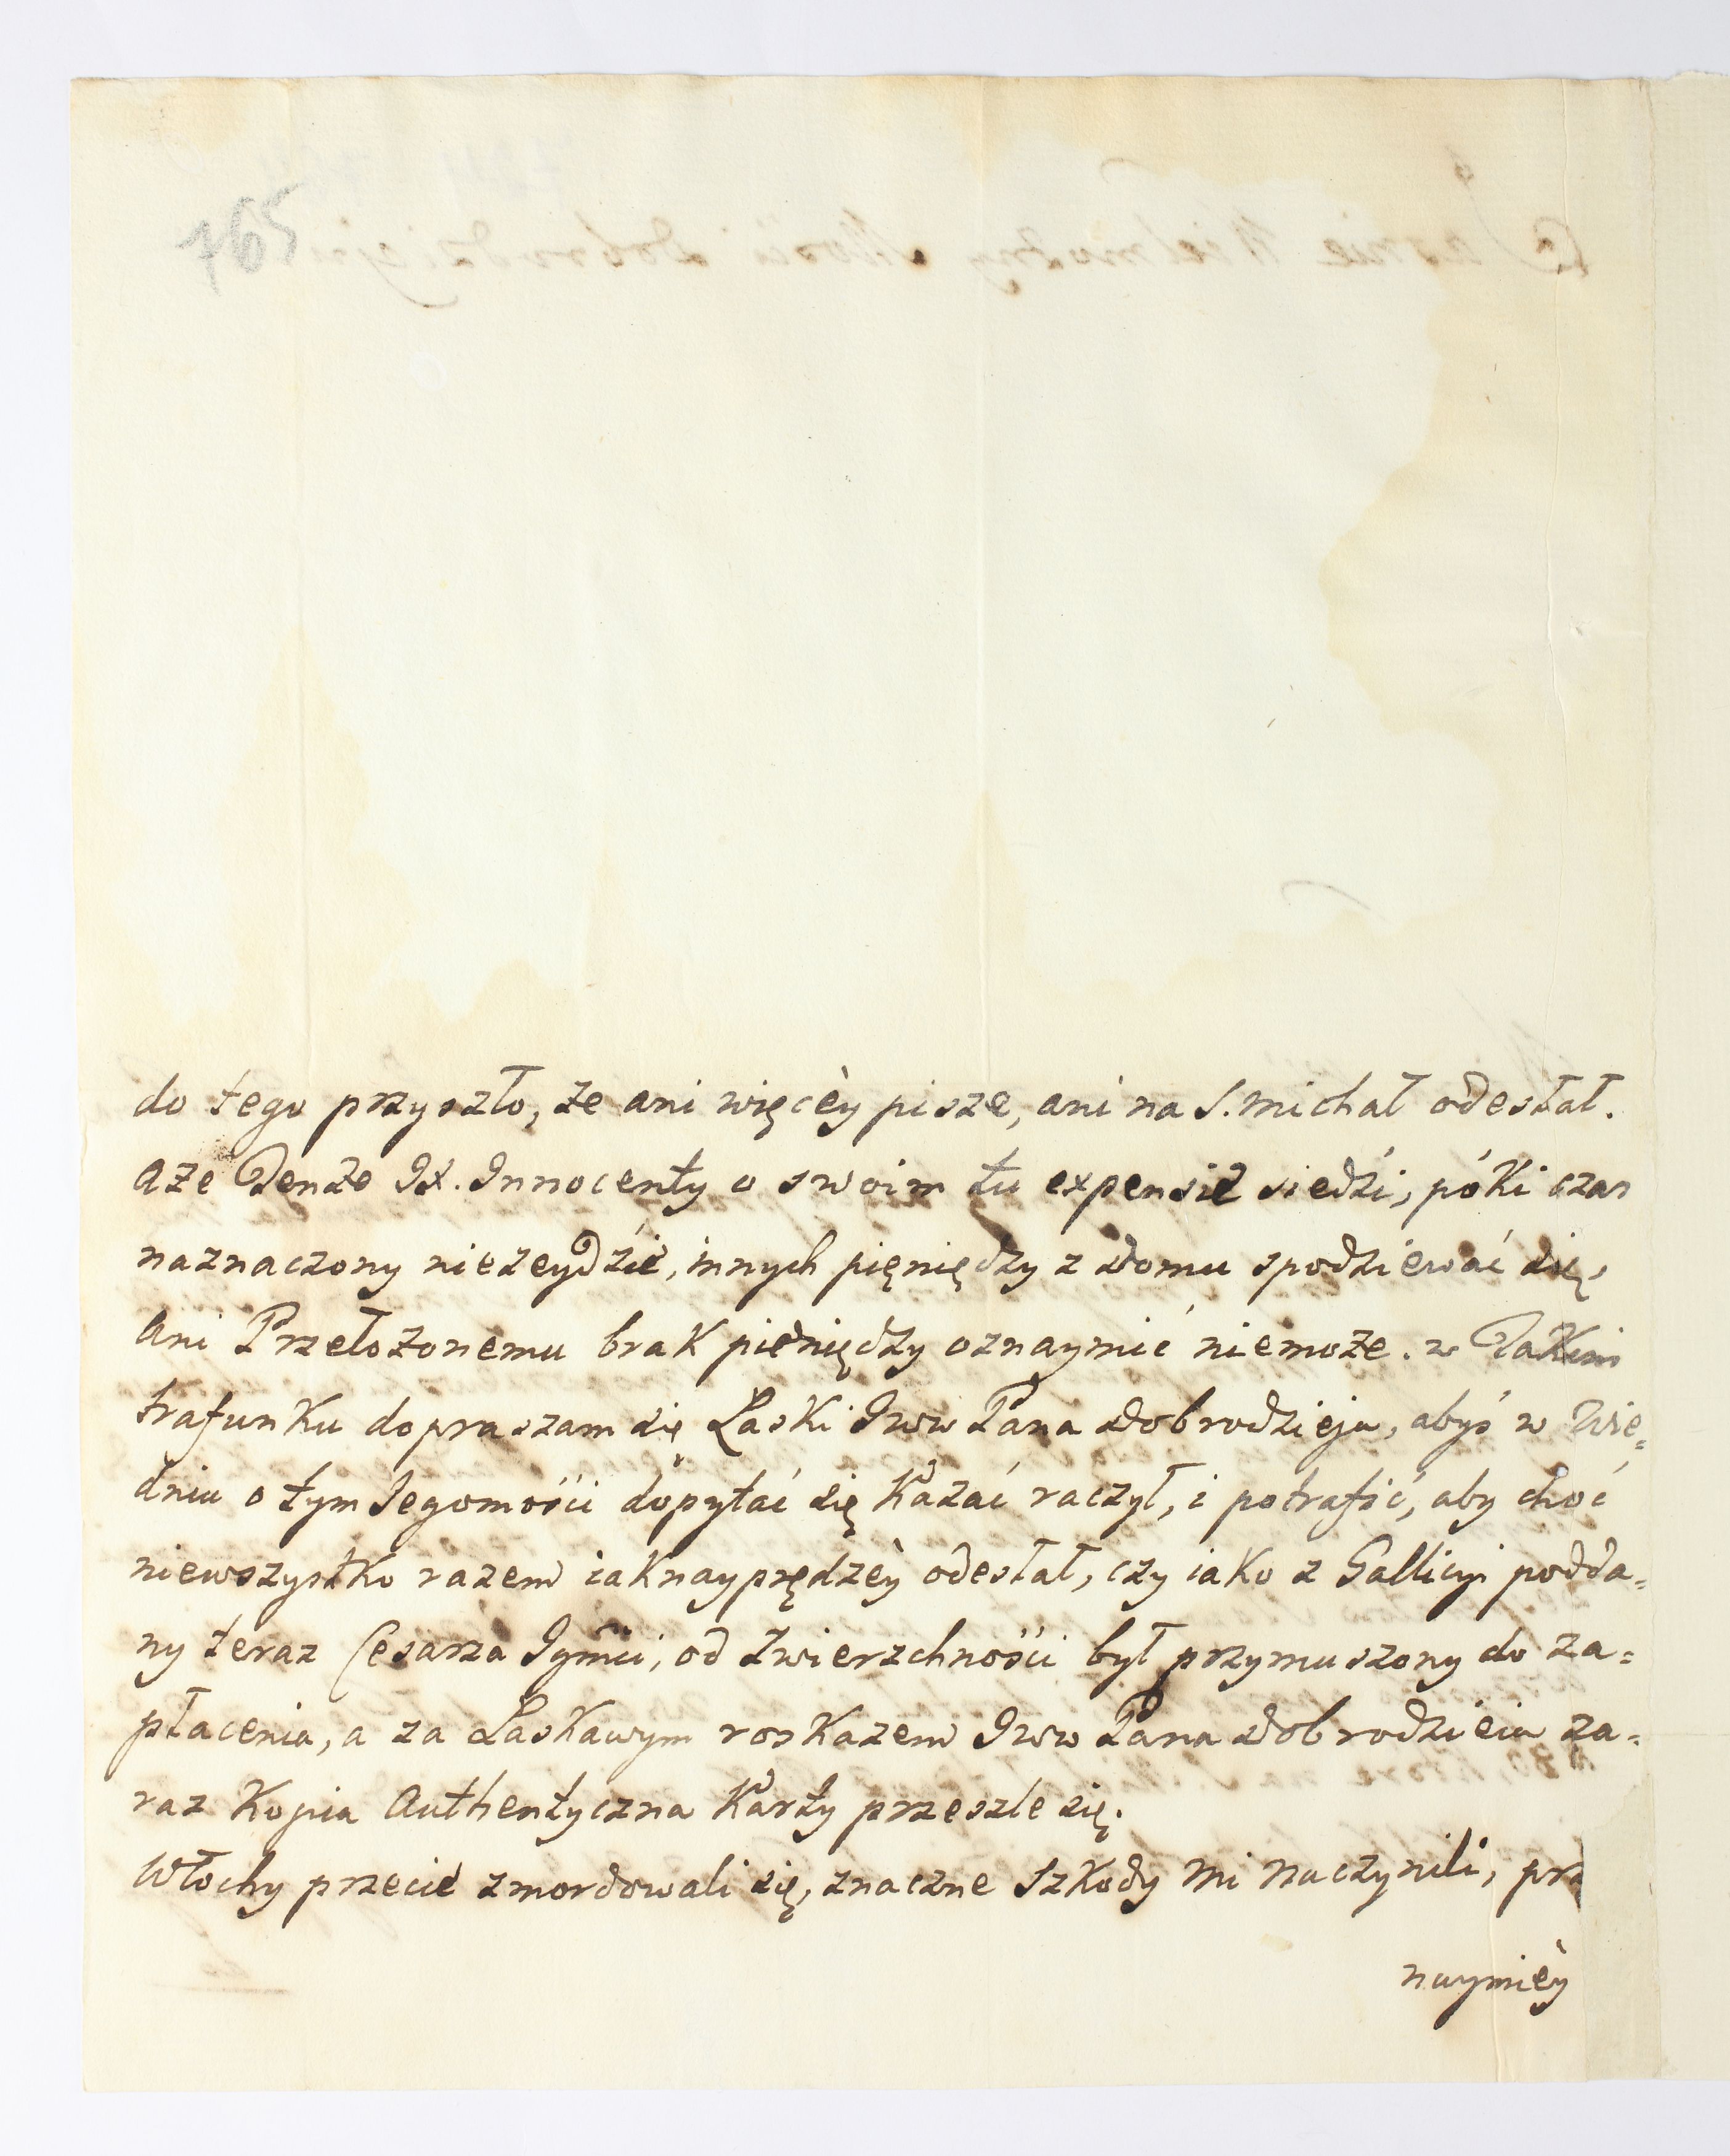 765
do tego przyszło, że ani więcèy pisze, ani na S. michał odesłał.
aże Tenże IX. Innocenty o swoim tu expensie siedzi, póki czas
naznaczony niezeydzie, innych pięniędzy z domu spodziewać się,
ani Przełożonemu brak pieniędzy oznaymić niemoże. w Takim
trafunku dopraszam się Łaski Jww Pana dobrodzieja, abyś w Wie=
dniu o tym Jegomości dopytać się Kazać raczył, i potrafić, aby choć
niewszystko razem iaknayprędzèy odesłał, czy iako z Gallicyi podda=
ny teraz Cesarza Jgmci, od zwierzchności był przymuszony do za=
płacenia, a za Łaskawym roskazem Jww Pana dobrodzieia za=
raz Kopia Authentyczna Karty przeszle się.
Włochy przecie zmordowali się, znaczne szkody mi naczynili,
naymièy